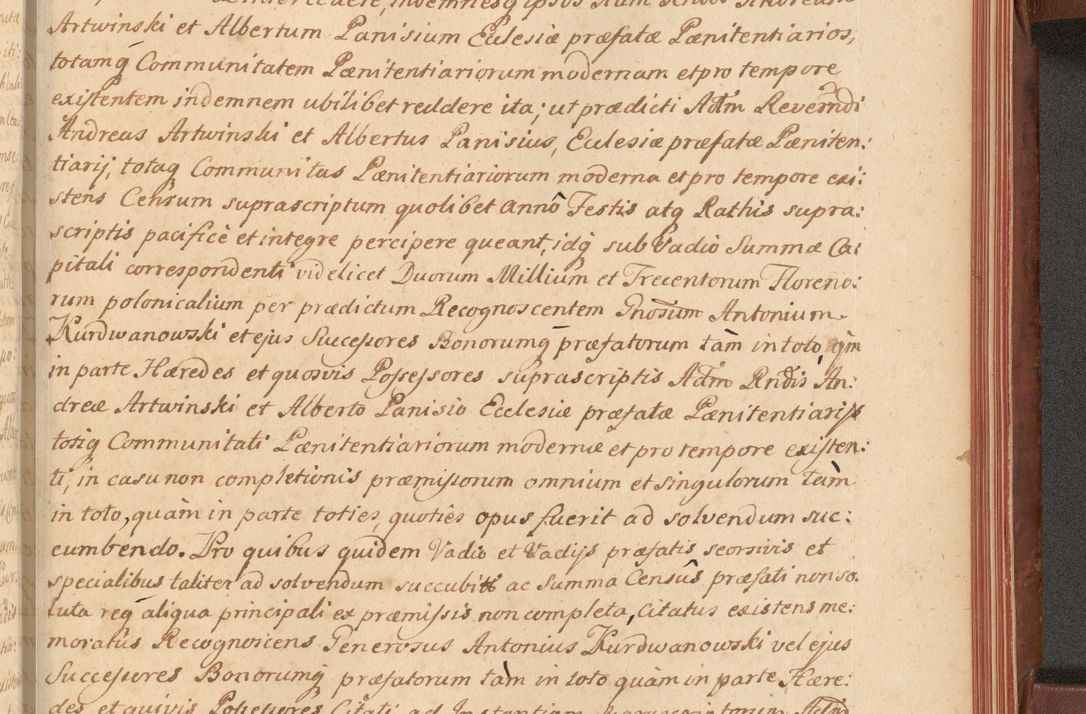 Artwinski et Albertum Panisium Ecclesiæ præfatæ Pænitentiarios,
totamq̃ Communitatem Pænitentiariorum modernam et pro tempore
existentem indemnem ubilibet reddere ita; ut prædicti Adm̃ Reverñdi
Andreas Artwinski et Albertus Panisius, Ecclesiæ præfatæ Pæniten:
tiarij, totaq̃ Communitas Pænitentiariorum moderna et pro tempore exi:
stens Censum suprascriptum quolibet Annô Festis atq̃ Rathis supra:
scriptis pacificè et integre percipere queant, idq̃ sub Vadio Summæ Ca:
pitali correspondenti videlicet Duorum Millium et Trecentorum Floreno:
rum polonicalium per prædictum Recognoscentem Gnõsum Antonium
Kurdwanowski et ejus Succeßores Bonorumq̃ præfatorum tàm in toto,
in parte Hæredes et quosvis Poßeßores suprascriptis Adm̃ Rñdis An:
dreæ Artwinski et Alberto Panisio Ecclesiæ præfatæ Pænitentiarijs
totiq̃ Communitati Pænitentiariorum modernæ et pro tempore existen:
ti, in casu non completionis præmißorum omnium et singulorum tàm
in toto, quàm in parte toties, quoties opus fuerit ad solvendum suc:
cumbendo. Pro quibus quidem Vadio et Vadijs præfatis seorsivis et
specialibus taliter ad solvendum ac Summa Censûs præfati non so:
luta req̃ aliqua principali ex præmißis non completa, Citatus existens me:
moratus Recognoscens Generosus Antonius Kurdwanowski vel ejus
Succeßores Bonorumq̃ præfatorum tàm in toto quàm in parte Hære:
des et quivis Poßeßores Citati ad Instantiam